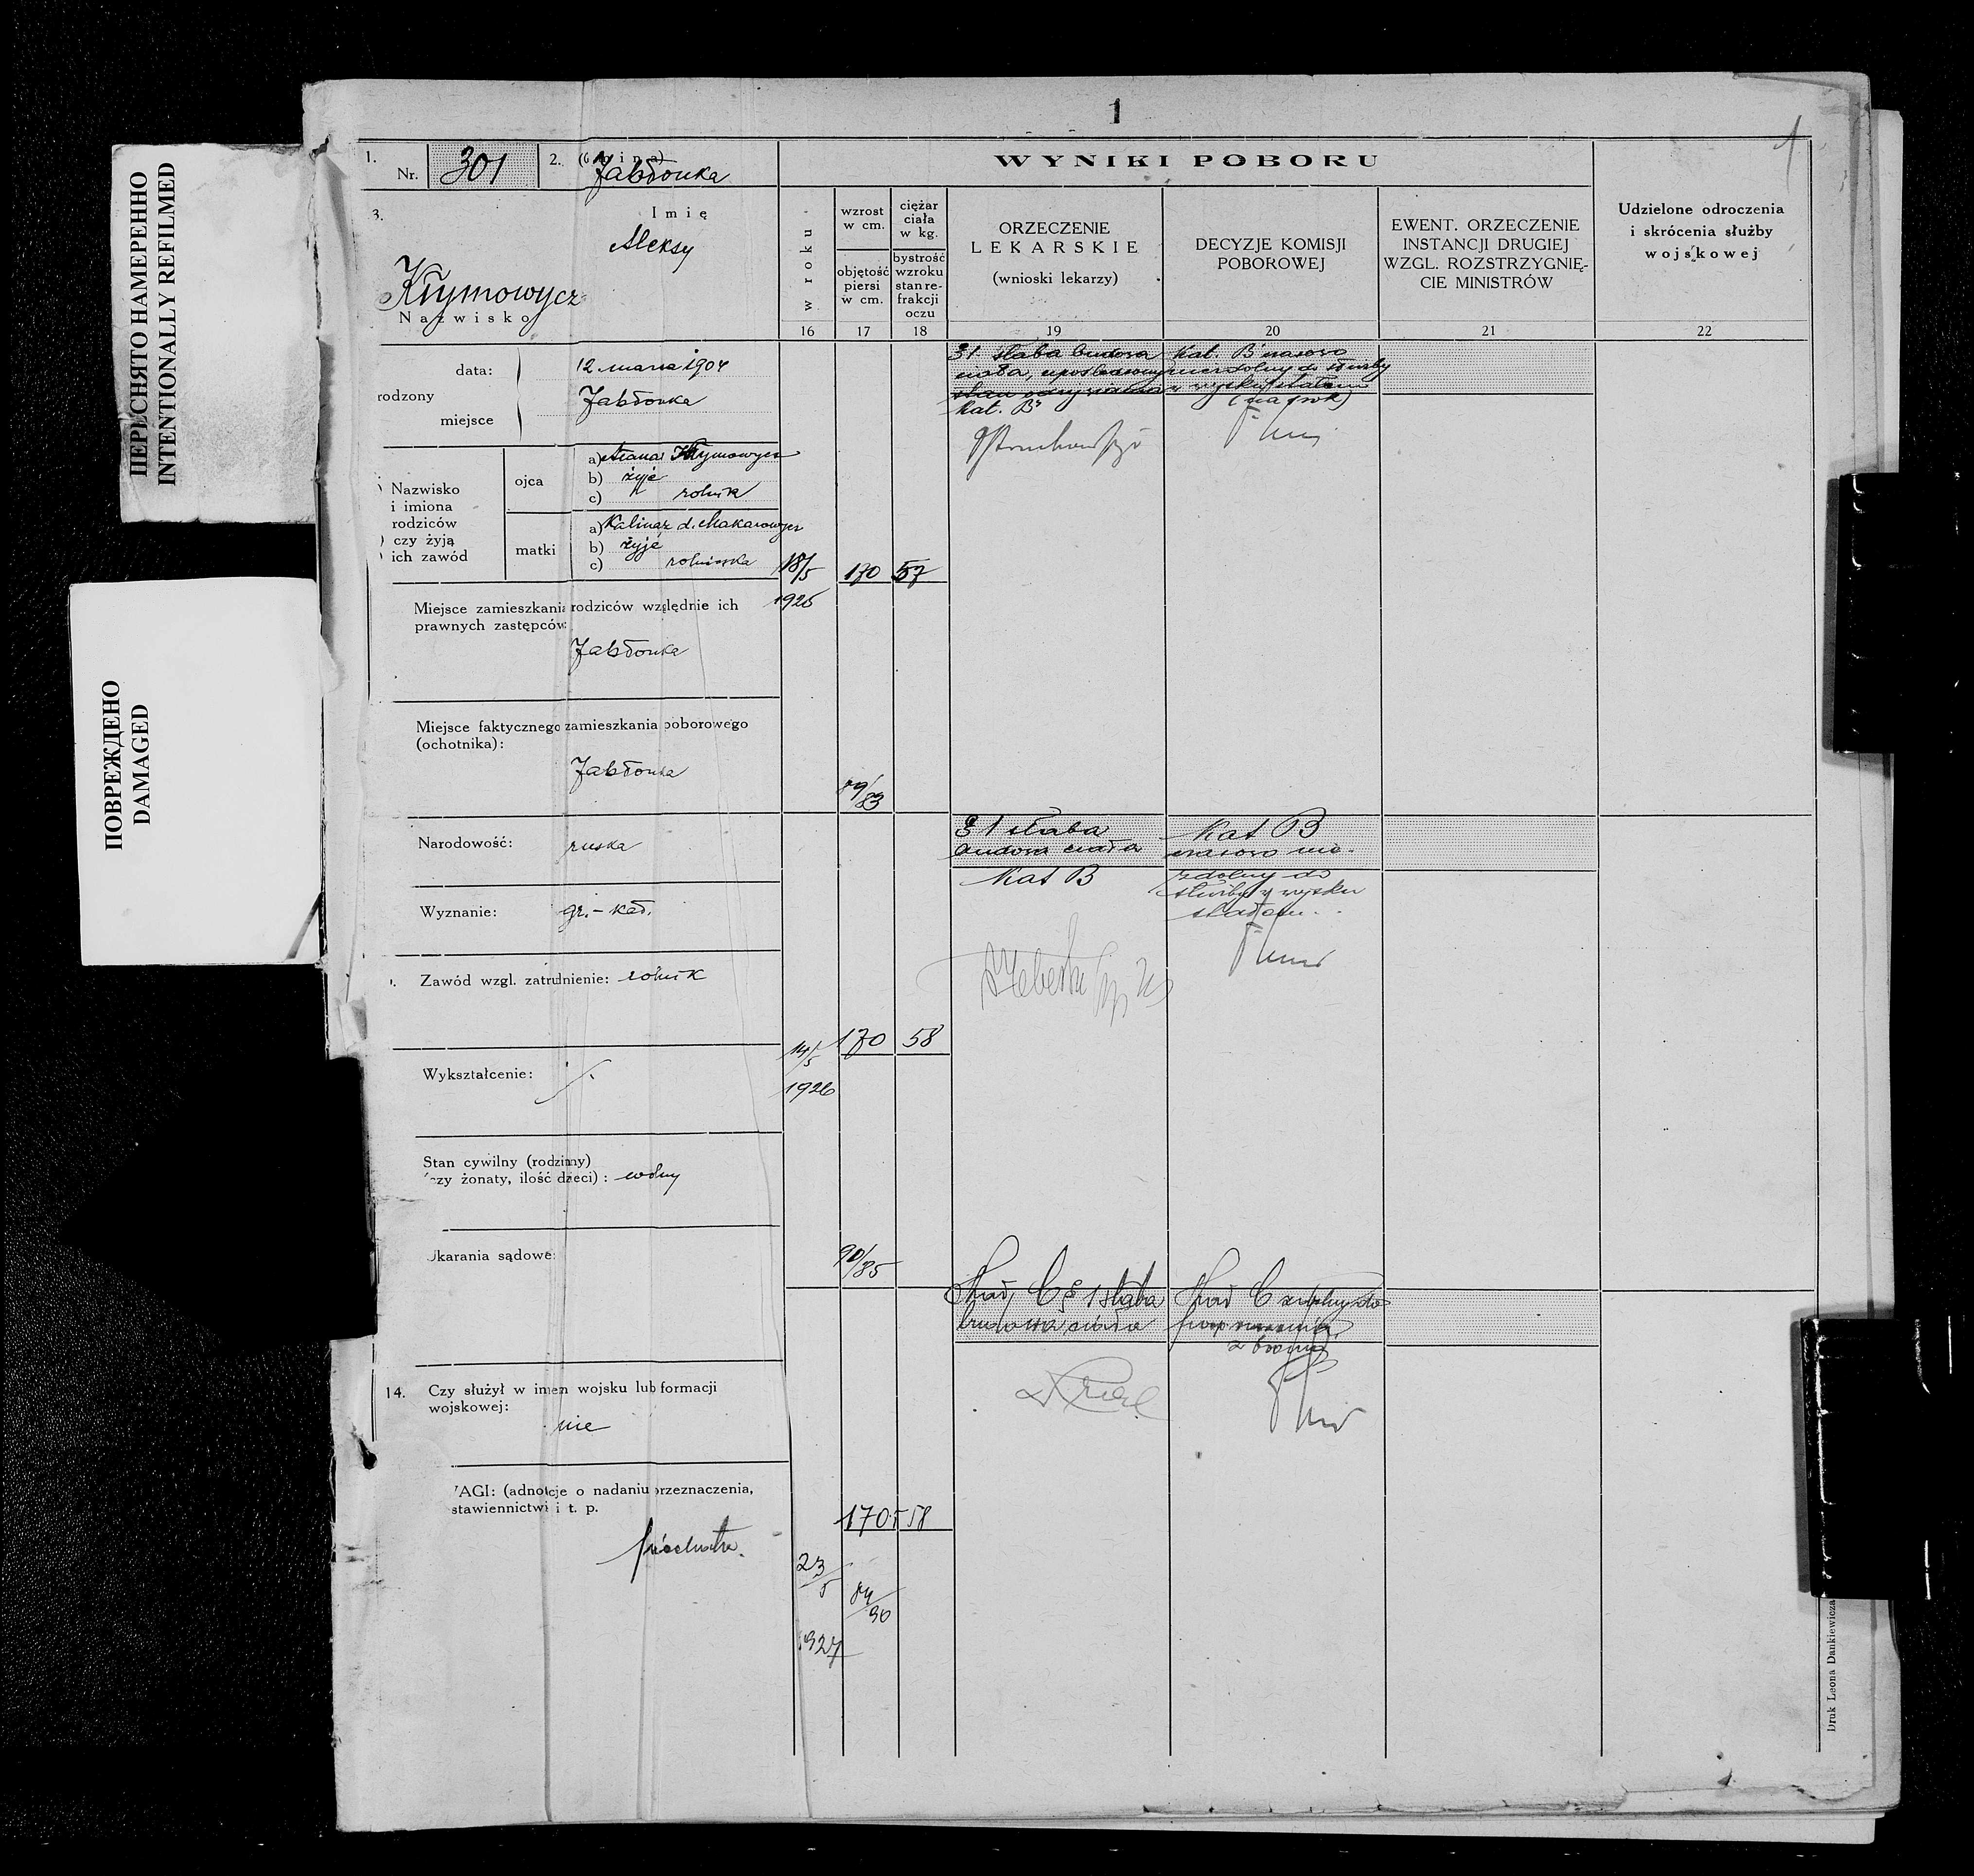 ПЕРЕСНЯТО НАМЕРЕННО
INTENTIONALLY REFILMED
ПОВРЕЖДЕНО
DAMAGED
1
1
1.
Nr. 301
2. (Gmina)
Jabłonka
3.
Imię
Aleksy
Kłymowycz
Nazwisko
WYNIKI POBORU
w roku
wzrost
w cm.
objętość
piersi
w cm.
ciężar
ciała
w kg.
bystrość
wzroku
stan re-
frakcji
oczu
ORZECZENIE
LEKARSKIE
(wnioski lekarzy)
DECYZJE KOMISJI
POBOROWEJ
EWENT. ORZECZENIE
INSTANCJI DRUGIEJ
WZGL. ROZSTRZYGNIĘ-
CIE MINISTRÓW
Udzielone odroczenia
i skrócenia służby
wojskowej
16 17 18 19 20 21 22
rodzony
data: 12 marca 1904
miejsce Jabłonka
Nazwisko
i imiona
rodziców
czy żyją
ich zawód
ojca
a) Kłymowycz
b) żyje
c) rolnik
matki
a) d. Makarowycz
b) żyje
c) rolniczka
Miejsce zamieszkania rodziców względnie ich
prawnych zastępców:
Jabłonka
Miejsce faktycznego zamieszkania poborowego
(ochotnika):
Jabłonka
Narodowość: ruska
Wyznanie: gr.-kat.
Zawód wzgl. zatrudnienie: rolnik
Wykształcenie:
Stan cywilny (rodzinny)
czy żonaty, ilość dzieci): wolny
Ukarania sądowe:
14. Czy służył w innem wojsku lub formacji
wojskowej:
nie
WAGI: (adnotacje o nadaniu przeznaczenia,
stawiennictwie i t. p.
piechota.
18/5
1925
170 57
89/83
§ 1 słaba budowa
ciała,
kat. B"
Kat. B czasowo
niezdolny do służby
w wojsku stałem
(na 1 rok)
14/5
1926
170 58
90/85
§ 1 słaba
budowa ciała
Kat B
Kat B
czasowo nie-
zdolny do
służby w wojsku
stałem.
23/5
1927
170.5 58
84/90
Kat. C § 1 słaba
budowa ciała
Kat C zdolny do
z bronią
Druk Leona Dankiewicza